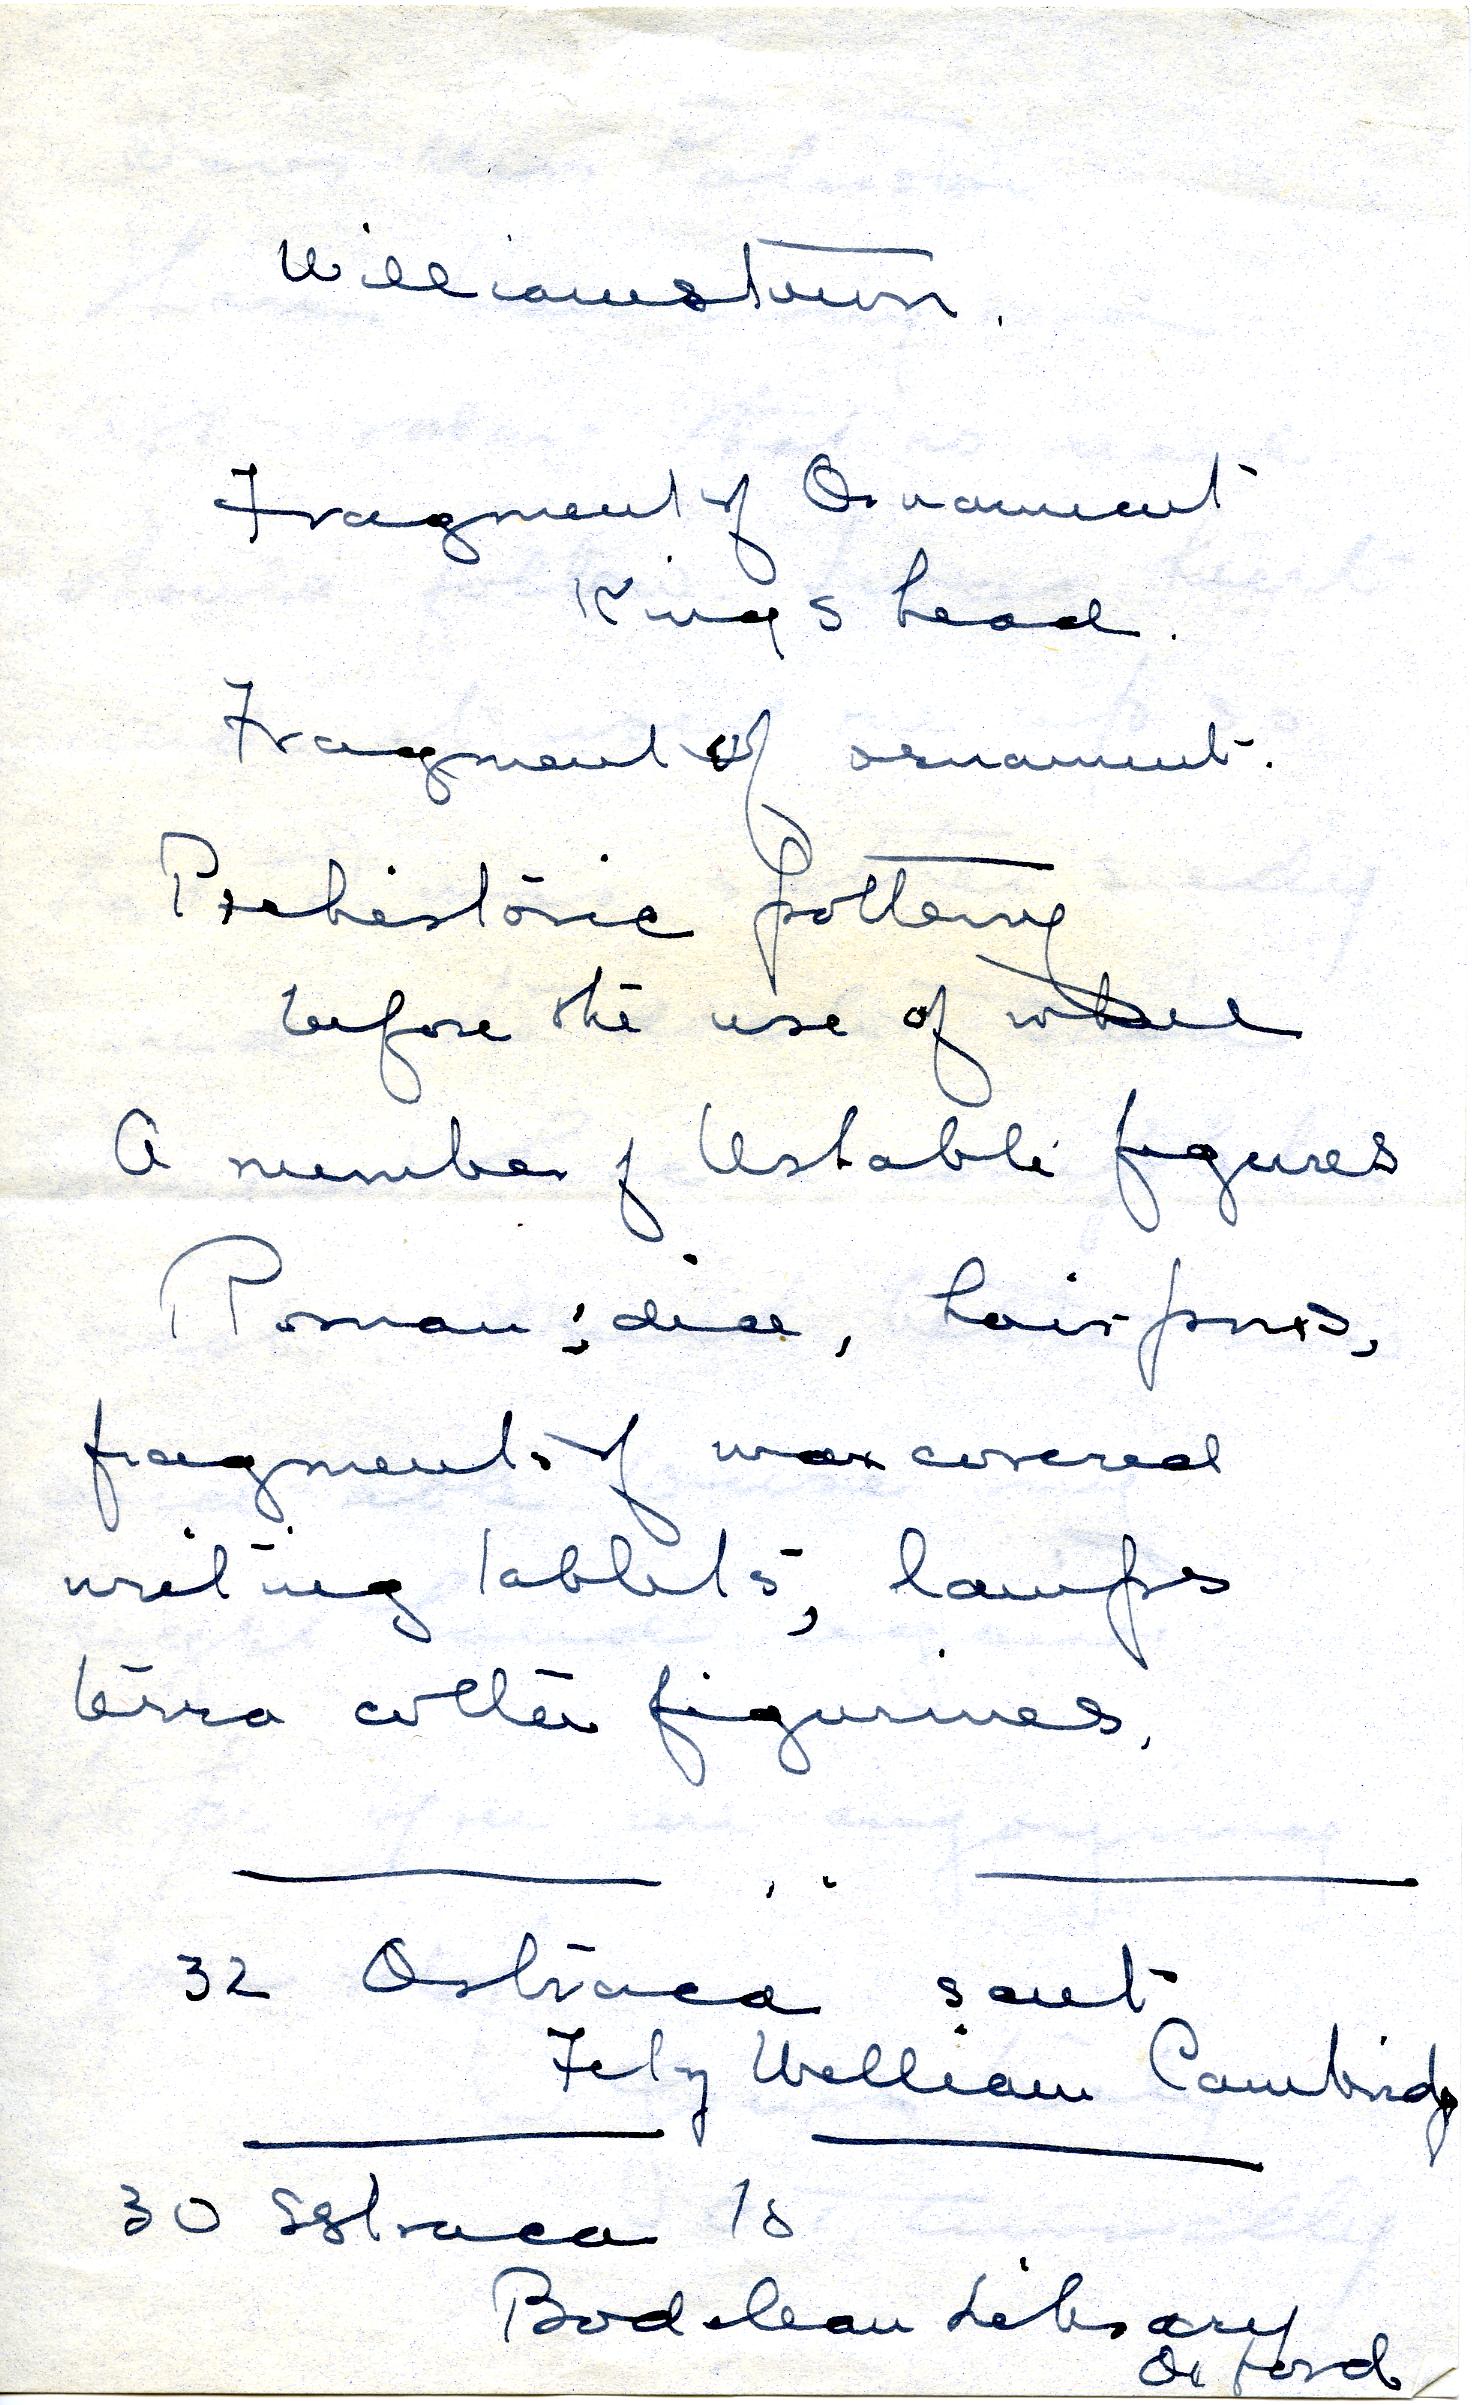 Williamstown.
Fragment of Ornament
Kings head.
Fragment of ornament.
Prehistoric pottery
before the use of wheel
A number of Ushabti figures
Roman: dice, hairpins,
fragments of wax covered
writing tablets, lamps
terra cotta figurines.
32 Ostraca sent
Fitz William Cambridge
30 Ostraca to
Bodelean Library
Oxford